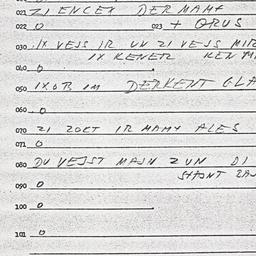 021 ZI ENCEY DER MAMY
022 0 023 + ORUS
030 IX VEJS IR UN ZI VEJS MIR
IX KENER KEN
010 0
050 IXOB IM DERKENT GLA
060 0
070 ZI ZOCT IR MAMY ALES
071 0
080 DU VEJST MAJN ZUN DI
SHTONT ZAJ
090 0
100 0
101 0